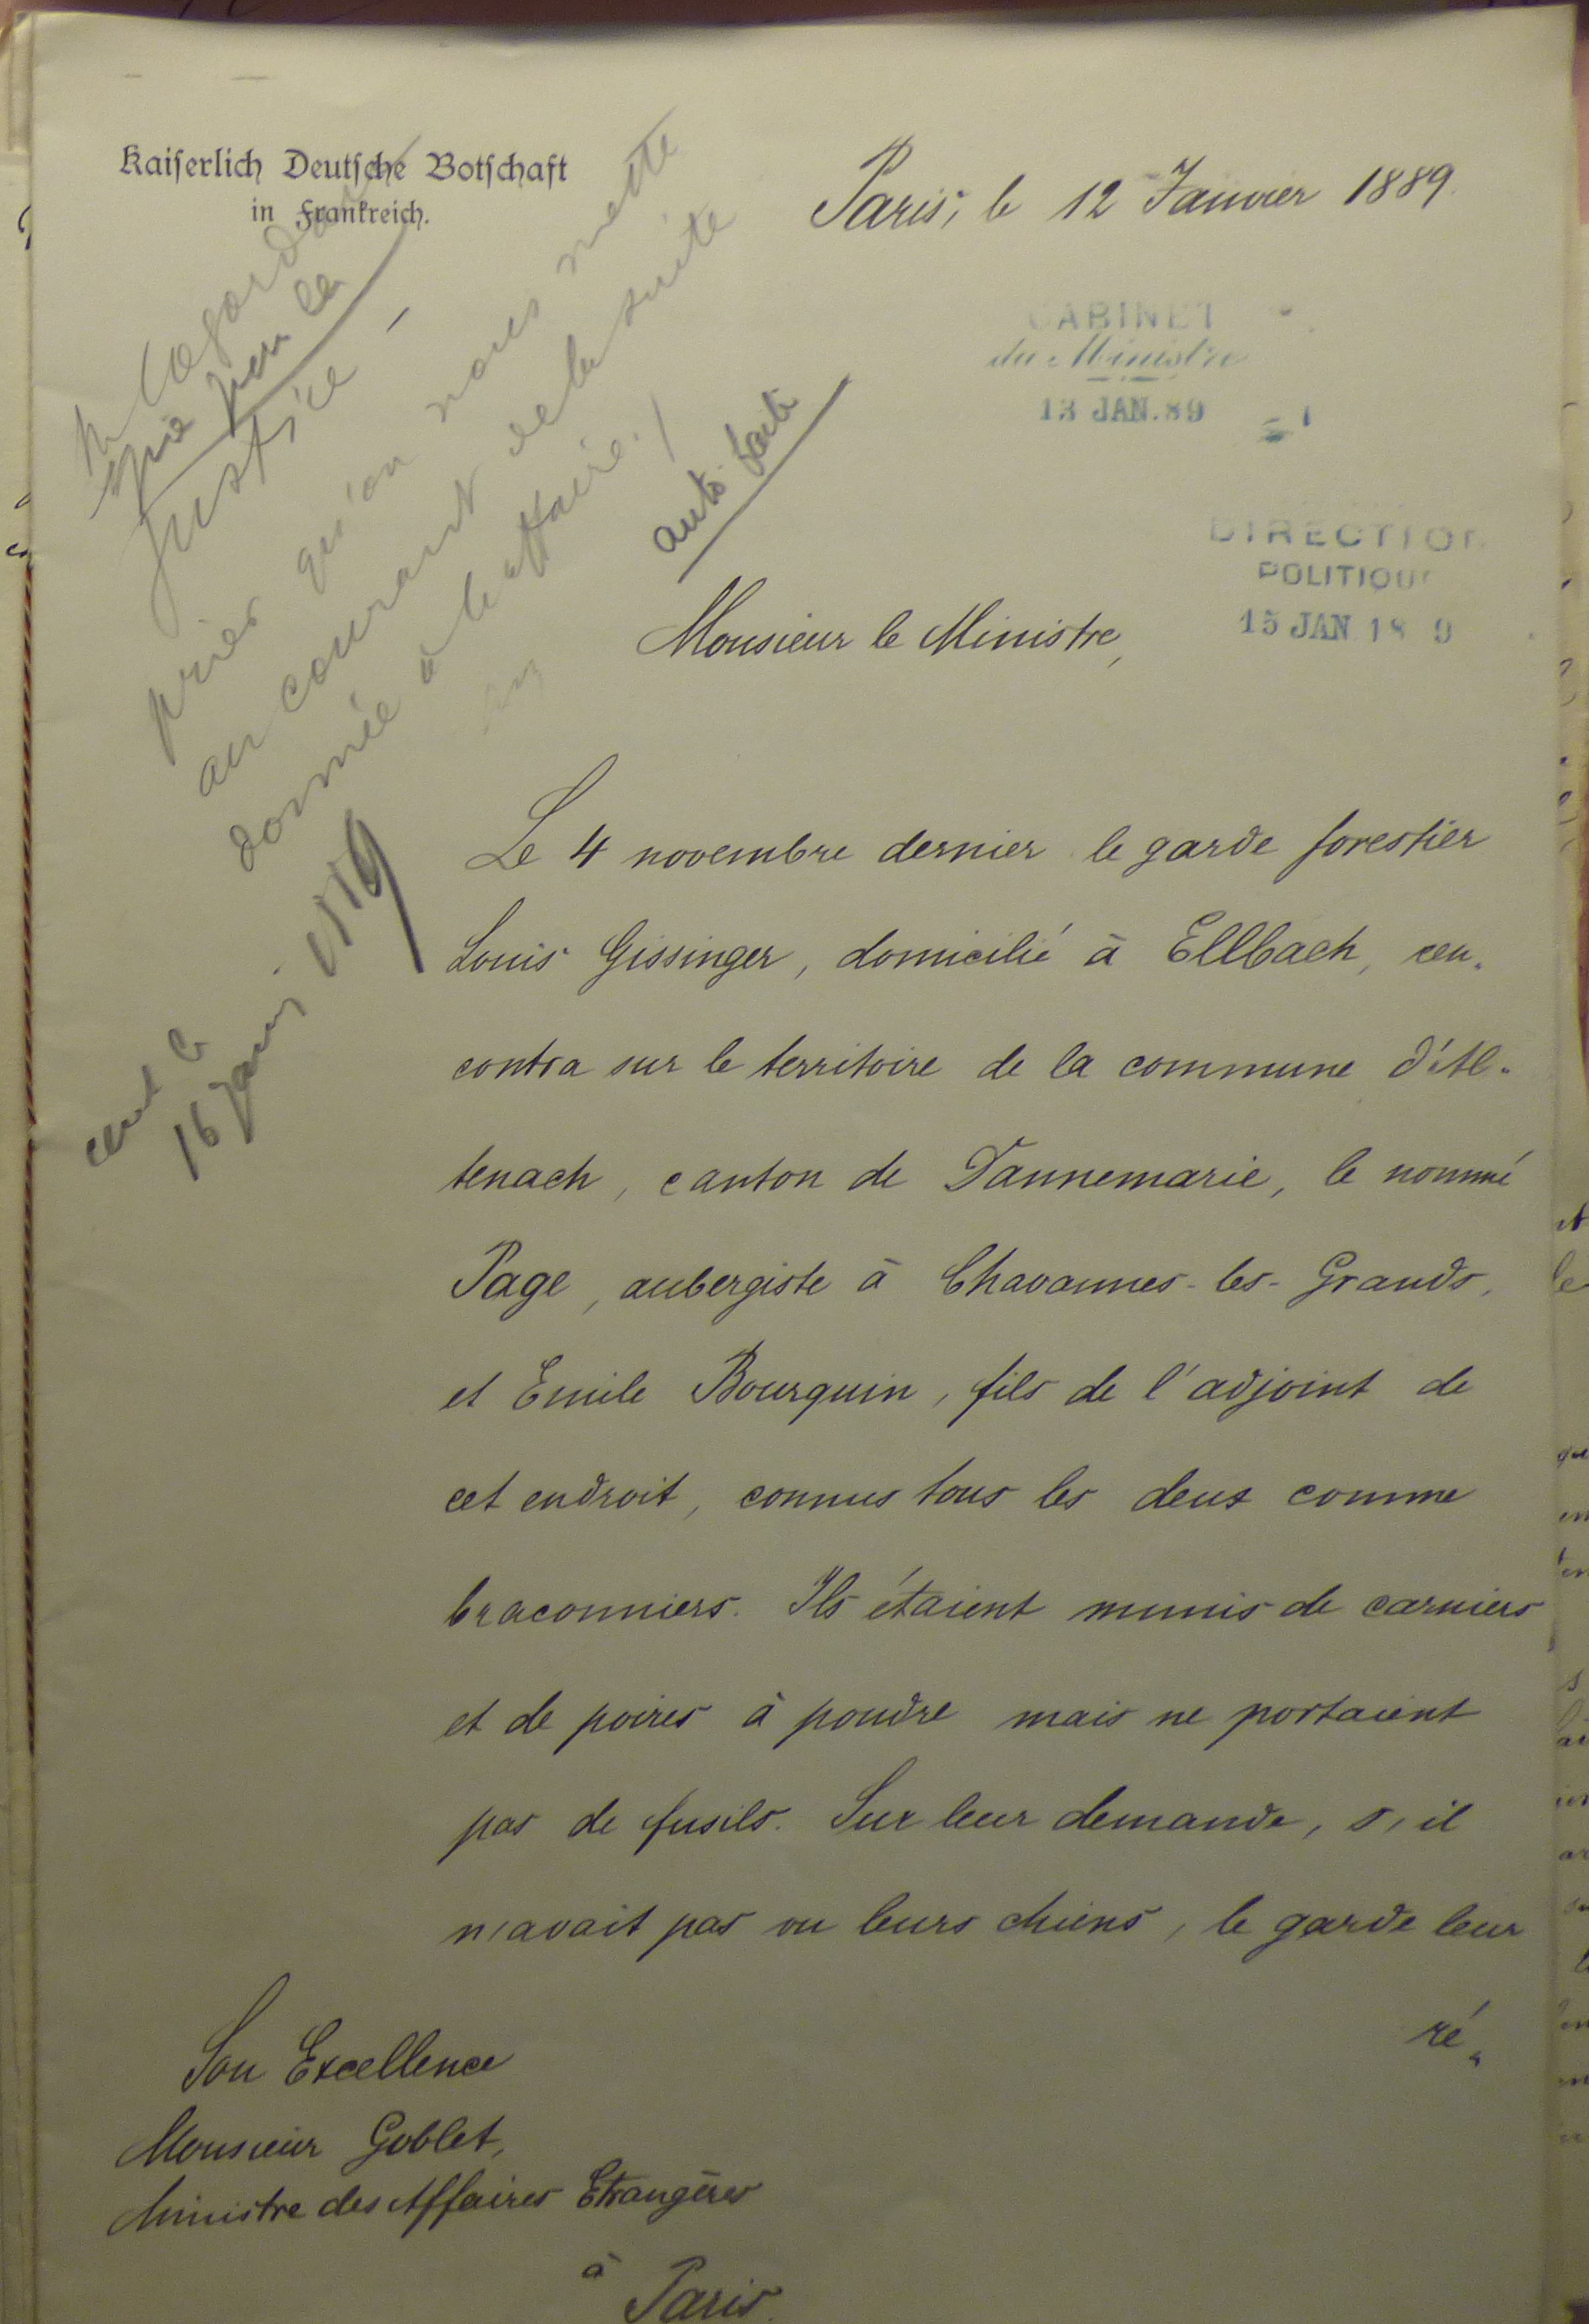 Kaiserlich Deutsche Botschaft
in Frankreich.
Paris, le 12 Janvier 1889.
CABINET
du Ministre
13 JAN. 89
DIRECTION
POLITIQUE
15 JAN 18 9
Justice
prier qu'on nous mette
au courant de la suite
donnée à l'affaire.
16 janv
Monsieur le Ministre,
Le 4 novembre dernier le garde forestier
Louis Gissinger, domicilié à Ellbach, ren-
contra sur le territoire de la commune d'Al-
tenach, canton de Dannemarie, le nommé
Page, aubergiste à Chavannes-les-Grands,
et Emile Bourquin, fils de l'adjoint de
cet endroit, connus tous les deux comme
braconniers. Ils étaient munis de carniers
et de poires à poudre mais ne portaient
pas de fusils. Sur leur demande, s'il
n'avait pas vu leurs chiens, le garde leur
ré-
Son Excellence
Monsieur Goblet,
Ministre des Affaires Etrangères
à Paris.